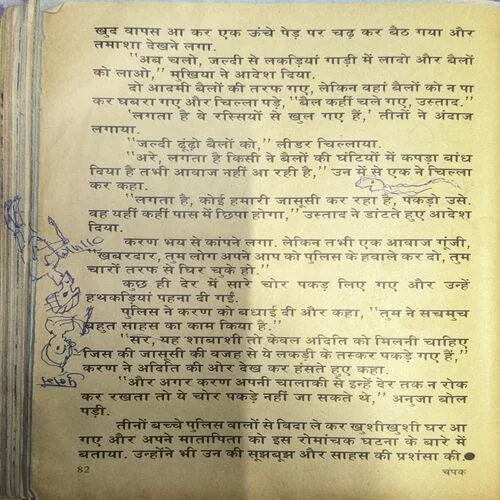 खुद वापस आ कर एक ऊंचे पेड़ पर चढ़ कर बैठ गया और
तमाशा देखने लगा.
"अब चलो, जल्दी से लकड़ियां गाड़ी में लादो और बैलों
को लाओ," मुखिया ने आदेश दिया.
दो आदमी बैलों की तरफ गए, लेकिन वहां बैलों को न पा
कर घबरा गए और चिल्ला पड़े, "बैल कहीं चले गए, उस्ताद."
'लगता है वे रस्सियों से खुल गए हैं,' तीनों ने अंदाज
लगाया.
"जल्दी ढूंढ़ो बैलों को," लीडर चिल्लाया.
"अरे, लगता है किसी ने बैलों की घंटियों में कपड़ा बांध
दिया है तभी आवाज नहीं आ रही है," उन में से एक ने चिल्ला
कर कहा.
"लगता है, कोई हमारी जासूसी कर रहा है, पकड़ो उसे.
वह यहीं कहीं पास में छिपा होगा," उस्ताद ने डांटते हुए आदेश
दिया.
करण भय से कांपने लगा. लेकिन तभी एक आवाज गूंजी,
"खबरदार, तुम लोग अपने आप को पुलिस के हवाले कर दो, तुम
चारों तरफ से घिर चुके हो."
कुछ ही देर में सारे चोर पकड़ लिए गए और उन्हें
हथकड़ियां पहना दी गईं.
पुलिस ने करण को बधाई दी और कहा, "तुम ने सचमुच
बहुत साहस का काम किया है."
"सर, यह शाबाशी तो केवल अदिति को मिलनी चाहिए
जिस की जासूसी की वजह से ये लकड़ी के तस्कर पकड़े गए हैं,"
करण ने अदिति की ओर देख कर हंसते हुए कहा.
"और अगर करण अपनी चालाकी से इन्हें देर तक न रोक
कर रखता तो ये चोर पकड़े नहीं जा सकते थे," अनुजा बोल
पड़ी.
तीनों बच्चे पुलिस वालों से विदा ले कर खुशीखुशी घर आ
गए और अपने मातापिता को इस रोमांचक घटना के बारे में
बताया. उन्होंने भी उन की सूझबूझ और साहस की प्रशंसा की.●
82 चंपक